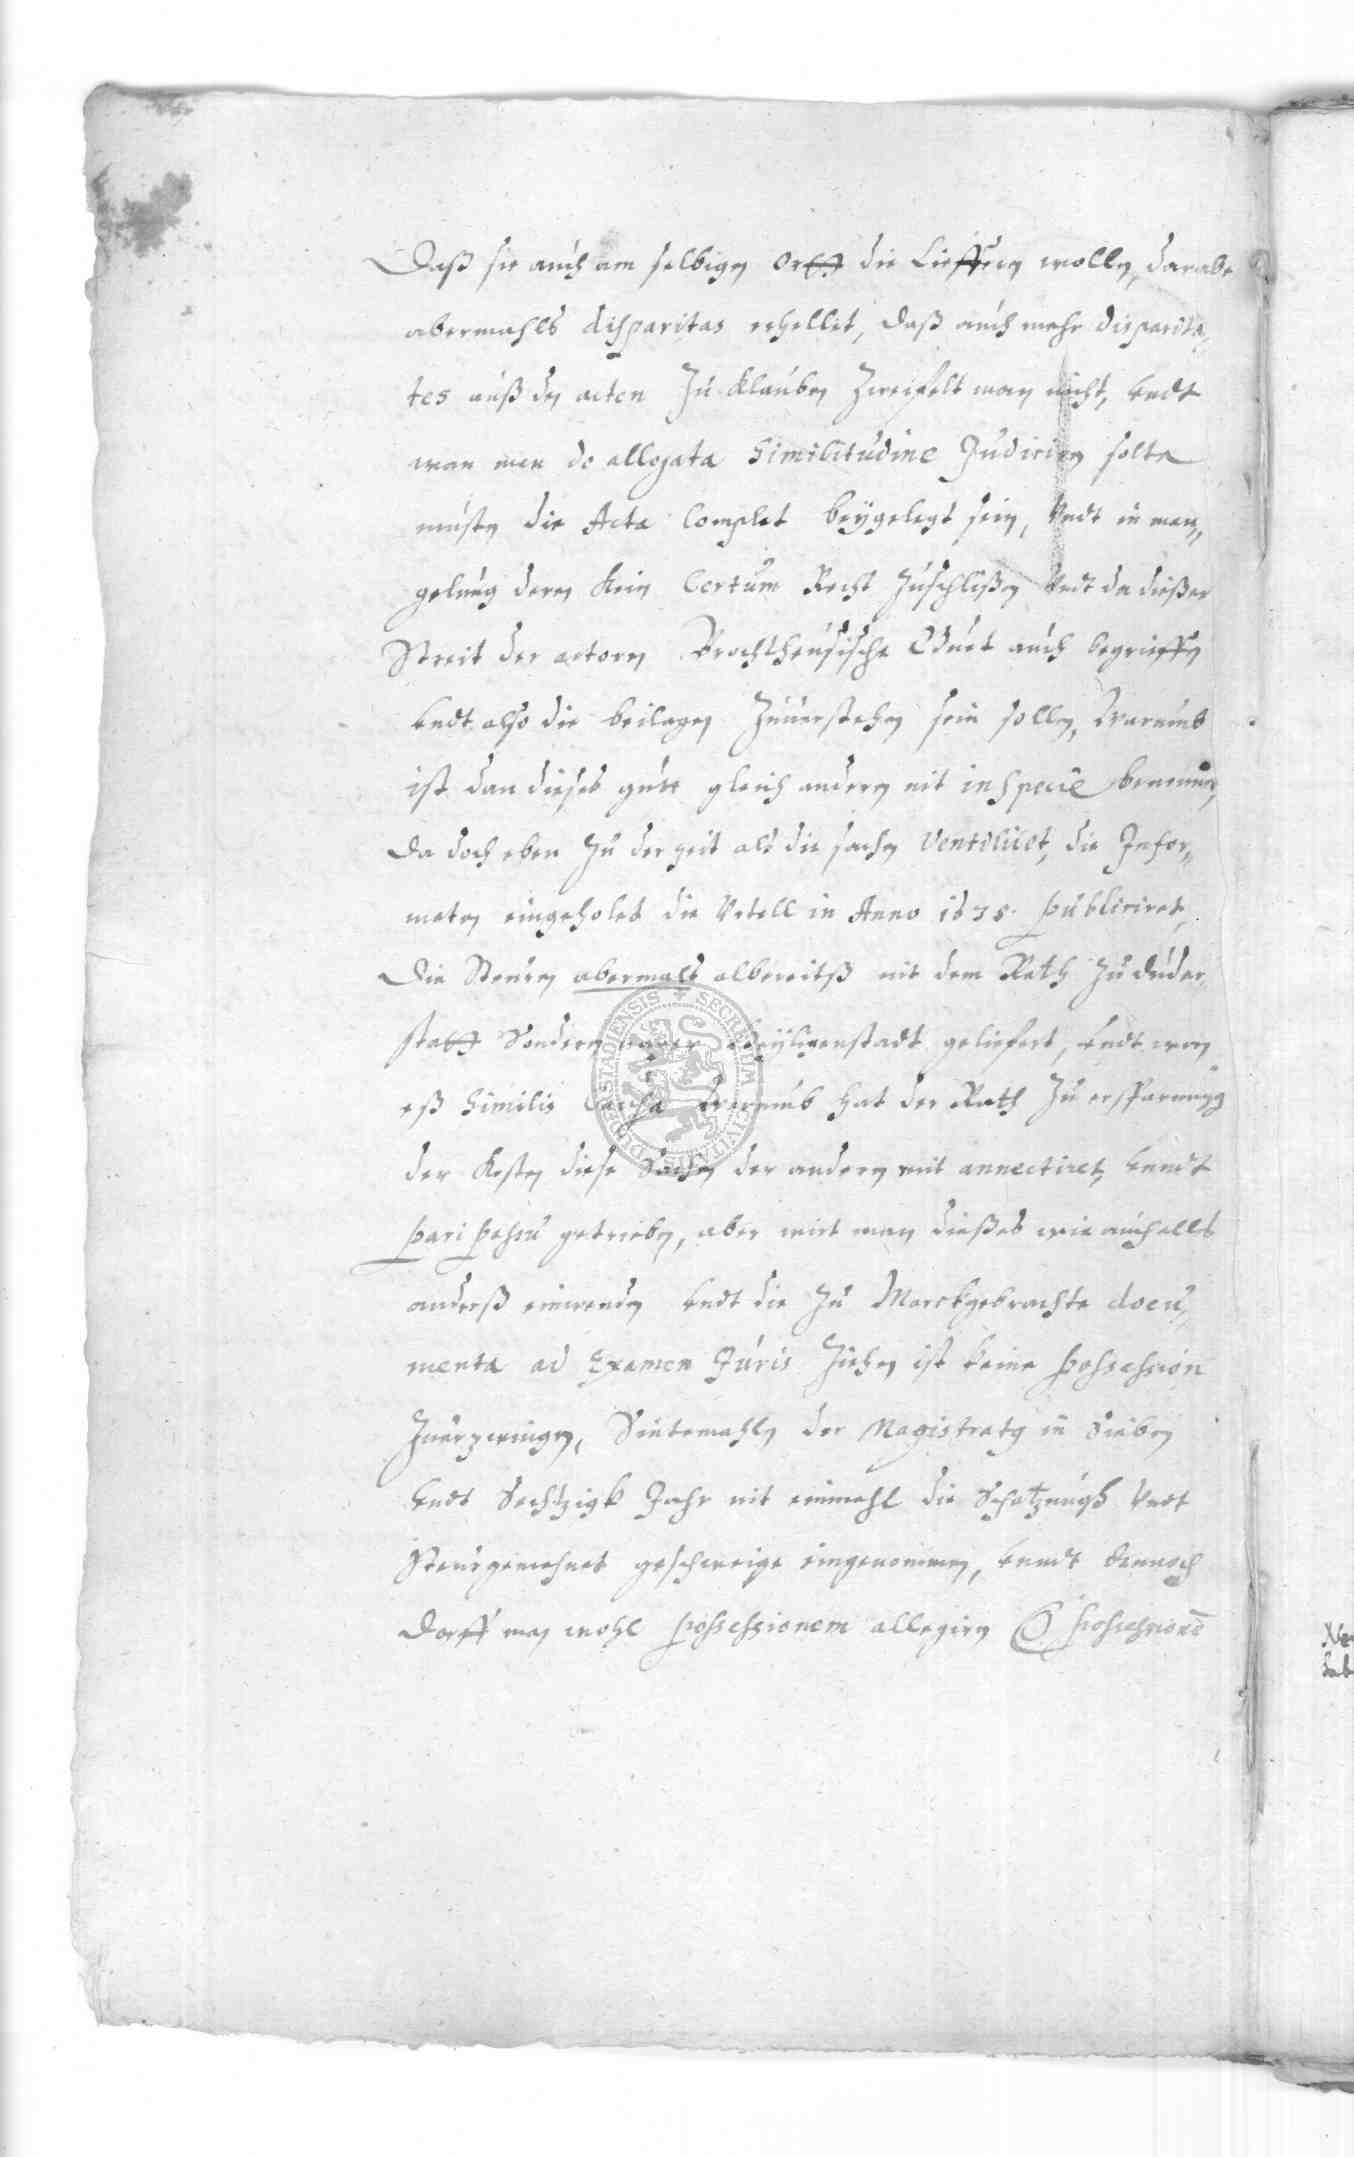 Daß sie auch am selbigen Orth die Lieffern wollen, darabe
abermahls disparitas erhellet, daß auch mehr disparita,
tes auß den acten Zu klauben Zweifelt man nicht, undt
wan man do allegata similitudine Judiciren solte
musten die Acta Complet beÿgelegt sein, Undt in man„
gelung deren Kein Certum Recht Zuschlißen Undt da dießer
Streit der actoren Brochtheusische Guet auch begrieffen
undt also die beilagen Zuverstehen sein sollen, Warumb
ist dan dieses gutt gleich andern nit in specie benennet,
Da doch eben Zu der Zeit als die sachen Ventiliret, die Infor„
maten eingeholet die Urtell in Anno 1635. publiciret,
Die Steuren abermals albereitß nit dem Rath Zu Duder,
statt Sondern naher Heÿligenstadt geliefert, undt wan
eß similis Causa Warumb hat der Rath Zu erspahrung
der Kosten diese Sachen der andern nit annectiret, unndt
pari passu getrieben, aber wirt man dießes wie auch alles
anderß einwenden undt die Zu Marckgebrachte docu„
menta ad Examen Juris Ziehen ist keine possession
Zuerzwingen, Sintemahlen der Magistratg in Sieben
undt Sechtzigk Jahr nit einmahl die Schatzungh Undt
Steur gerechnet geschweige eingenommen, unndt dennoch
Dorff man wohl possessionem allegiren possessionē